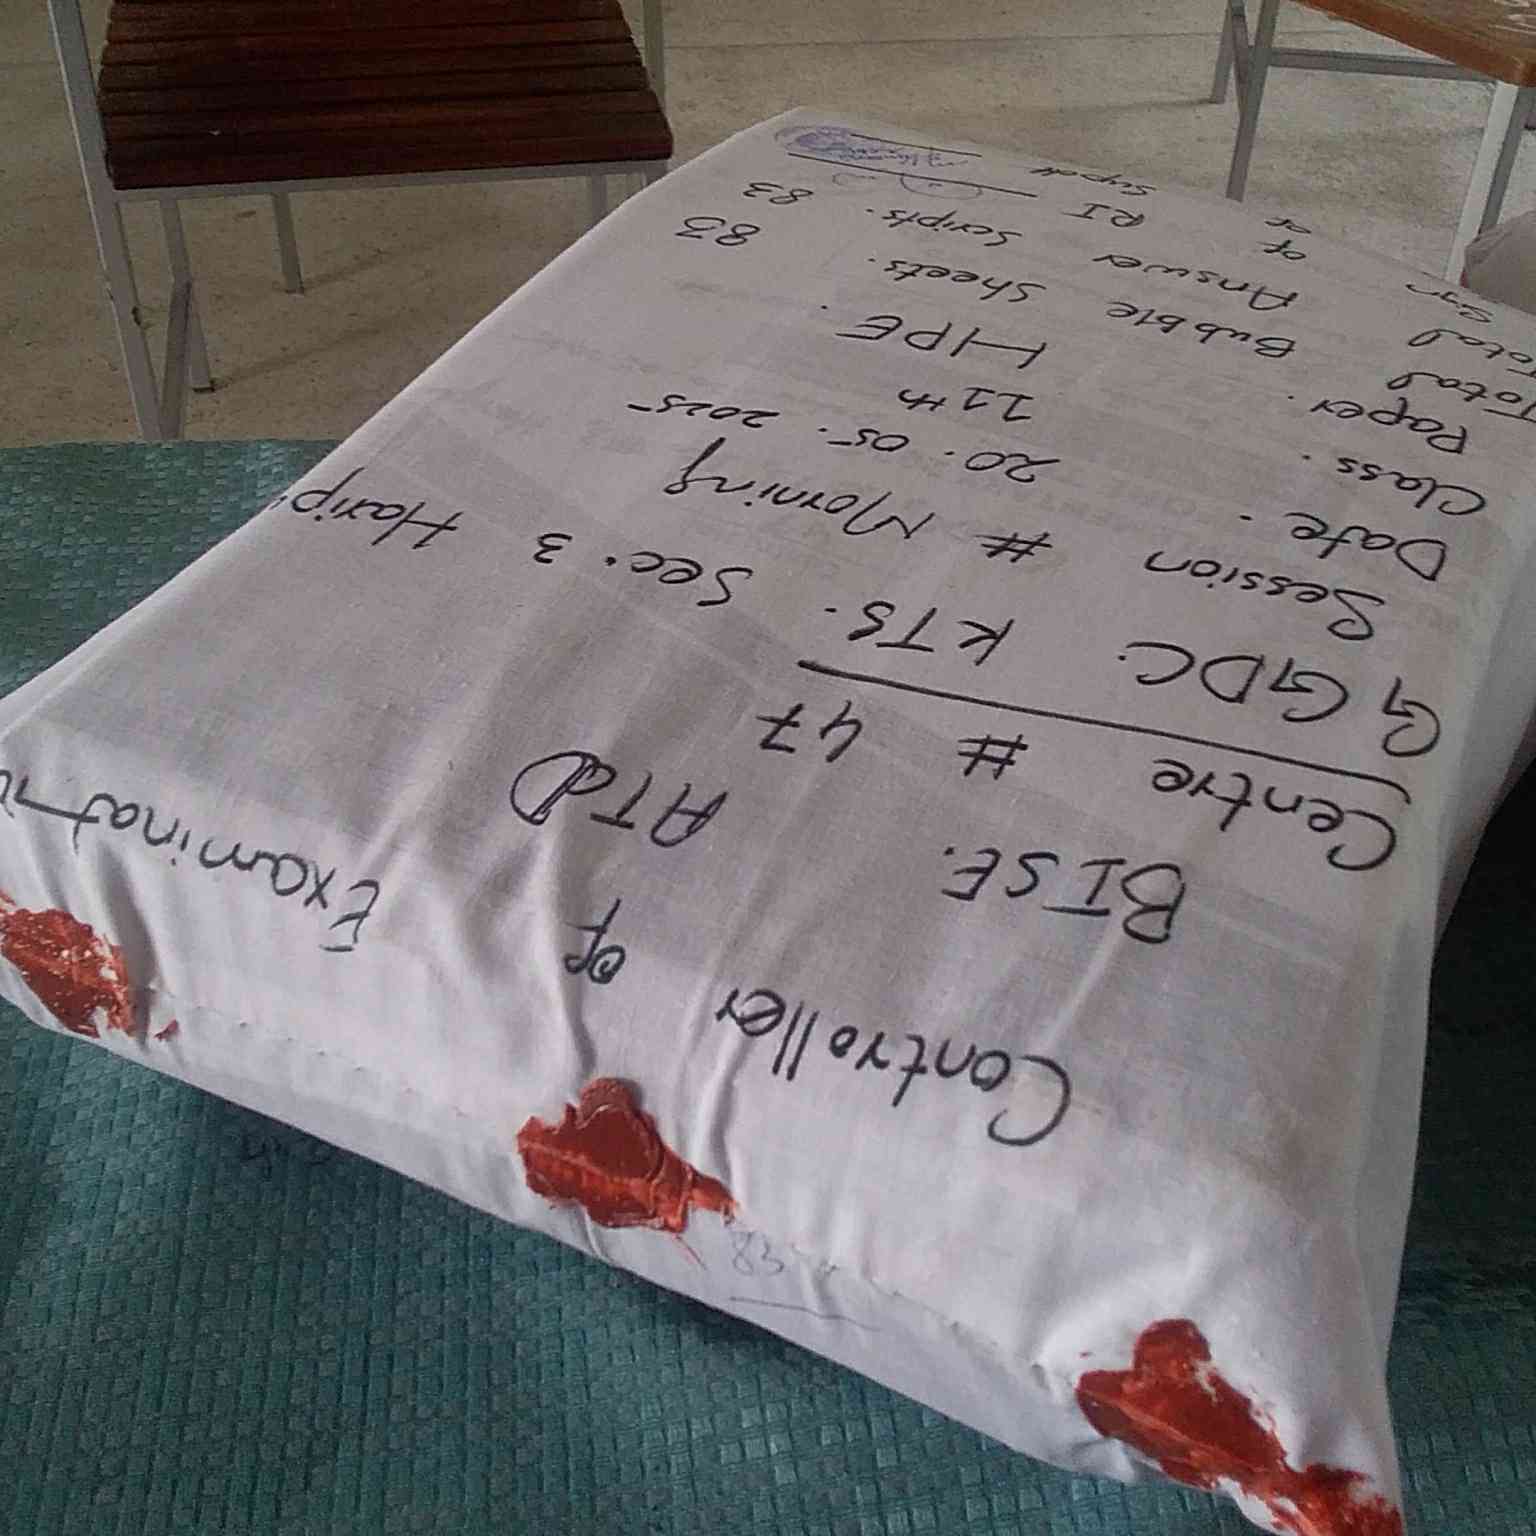 Controller of Examinati
BISE. ATD
Centre # 47
GGDC. KTS. Sec. 3 Harip
Session # Morning
Date. 20. 05. 2025
Class. 11th
Paper. HPE.
Total Bubble Sheets. 83
Total Answer Scripts. 83
Sign of RI
of Supdt
83